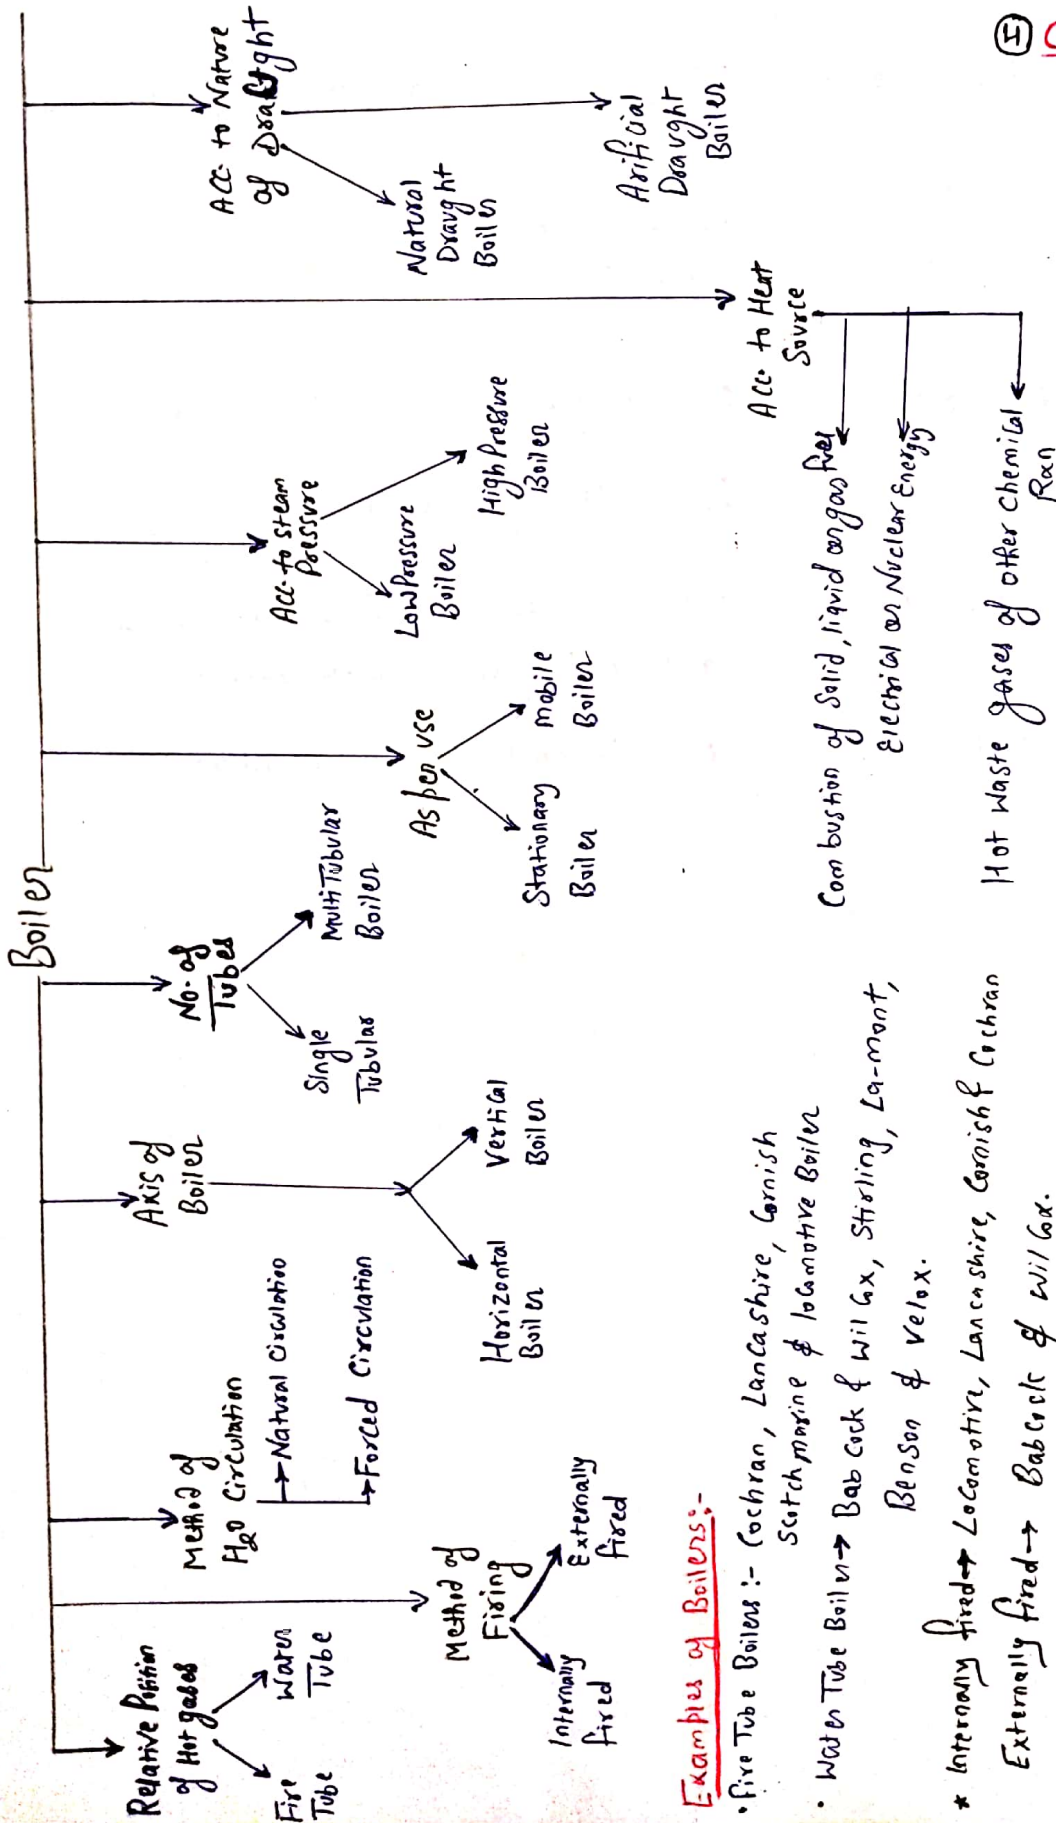 Boiler
Relative Position
of Hot gases
Fire
Tube
Water
Tube
Method of
Firing
Internally
fired
Externally
fired
Method of
H2O Circulation
Natural Circulation
Forced Circulation
Axis of
Boiler
Horizontal
Boiler
Vertical
Boiler
No. of
Tubes
Single
Tubular
Multi Tubular
Boiler
As per use
Stationary
Boiler
Mobile
Boiler
Acc. to Steam
Pressure
Low Pressure
Boiler
High Pressure
Boiler
Acc. to Heat
Source
Combustion of Solid, liquid or gas fuel
Electrical or Nuclear Energy
Hot waste gases of other chemical
Rxn
Acc. to Nature
of Draught
Natural
Draught
Boiler
Arificial
Draught
Boiler
Examples of Boilers:-
• Fire Tube Boilers :- Cochran, Lancashire, Cornish
Scotch marine & locomotive Boiler
• Water Tube Boiler → Bab Cock & Wil Cox, Stirling, La-mont,
Benson & Velox.
* Internally fired → Locomotive, Lancashire, Cornish & Cochran
Externally fired → Babcock & Wil Cox.
I